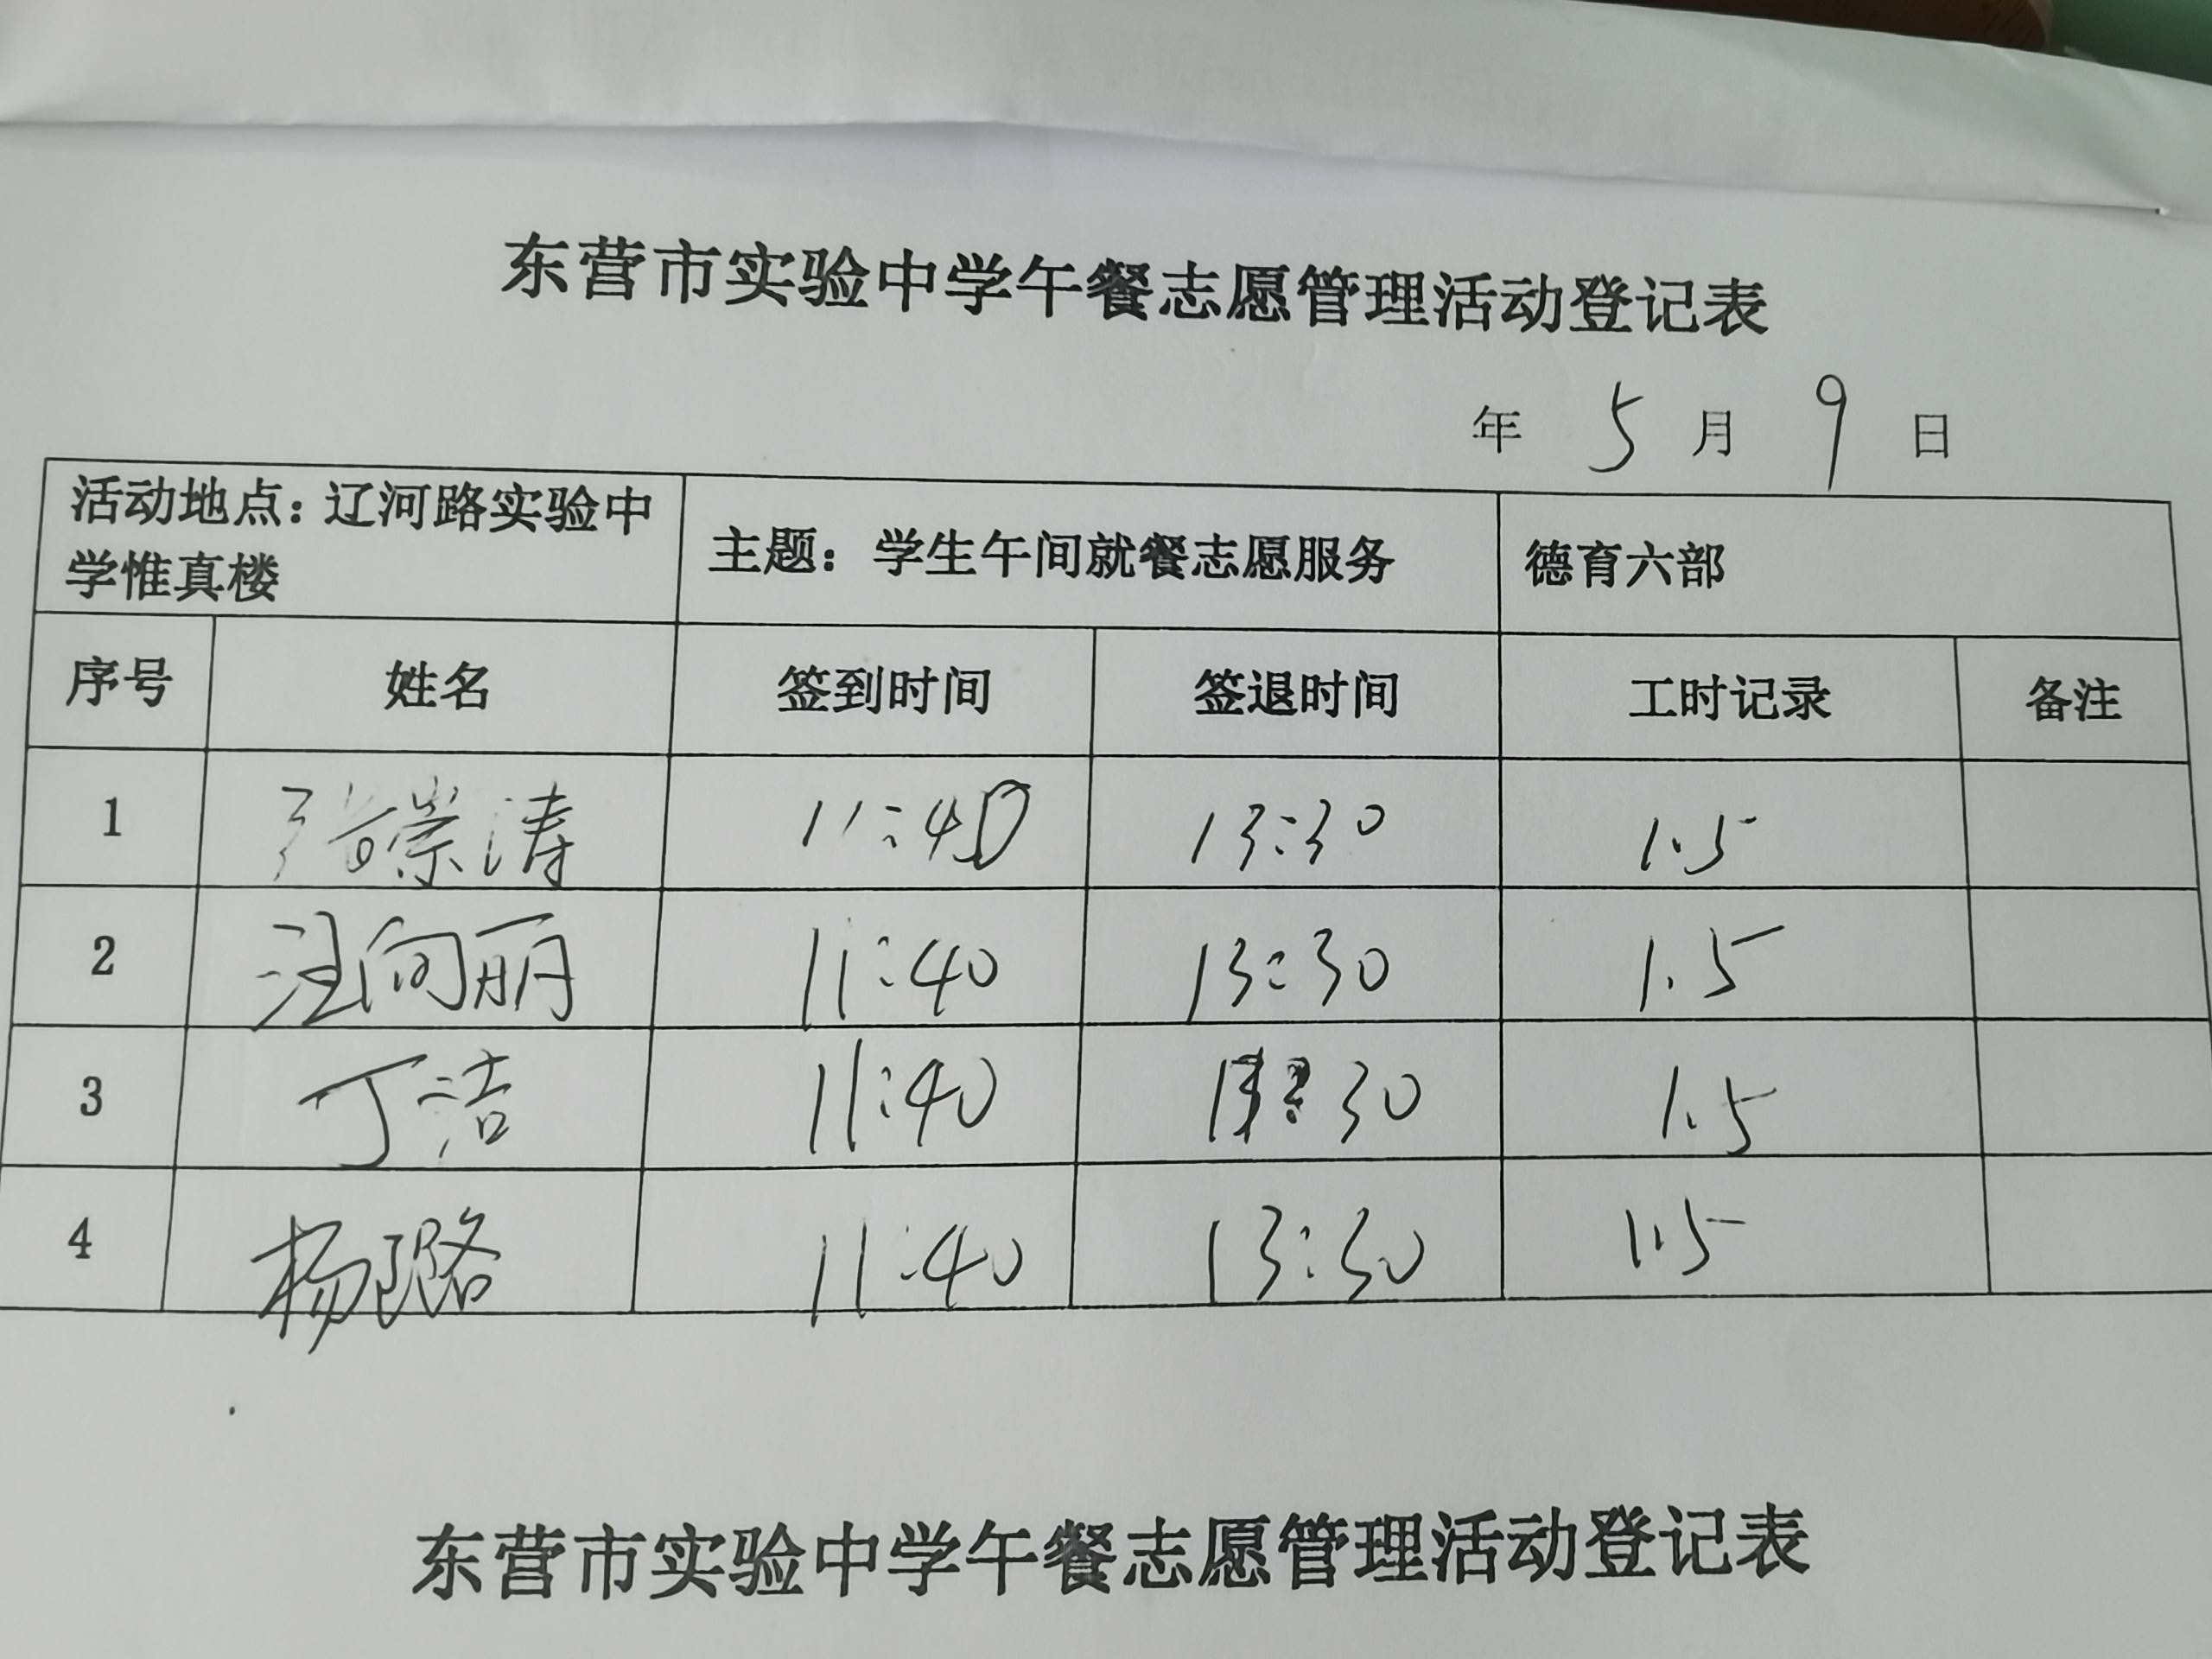 东营市实验中学午餐志愿管理活动登记表
年 5 月 9 日
活动地点：辽河路实验中
学惟真楼
主题：学生午间就餐志愿服务
德育六部
序号 姓名 签到时间 签退时间 工时记录 备注
1 张崇涛 11:40 13:30 1.5
2 汪向丽 11:40 13:30 1.5
3 丁洁 11:40 13:30 1.5
4 杨璐 11:40 13:30 1.5
东营市实验中学午餐志愿管理活动登记表